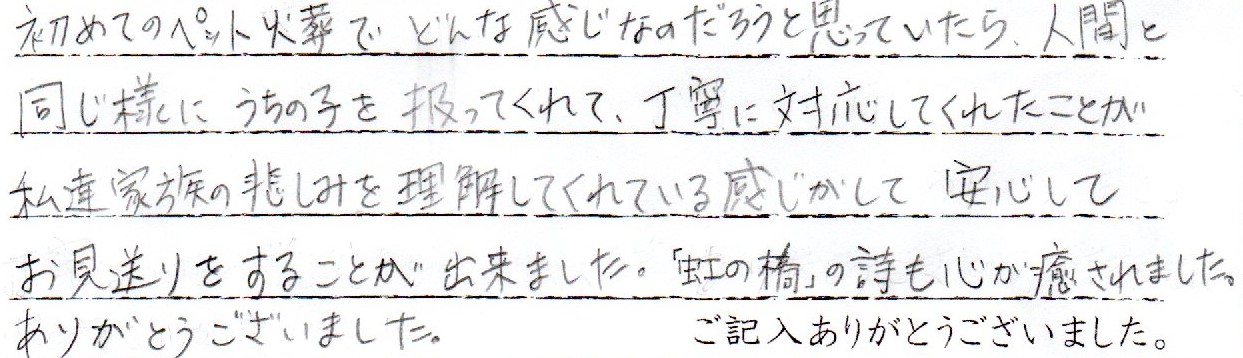 初めてのペット火葬で どんな感じなのだろうと思っていたら、人間と
同じ様に うちの子を 扱ってくれて、丁寧に対応してくれたことが
私達家族の悲しみを理解してくれている感じがして 安心して
お見送りをすることが出来ました。「虹の橋」の詩も心が癒されました。
ありがとうございました。 ご記入ありがとうございました。